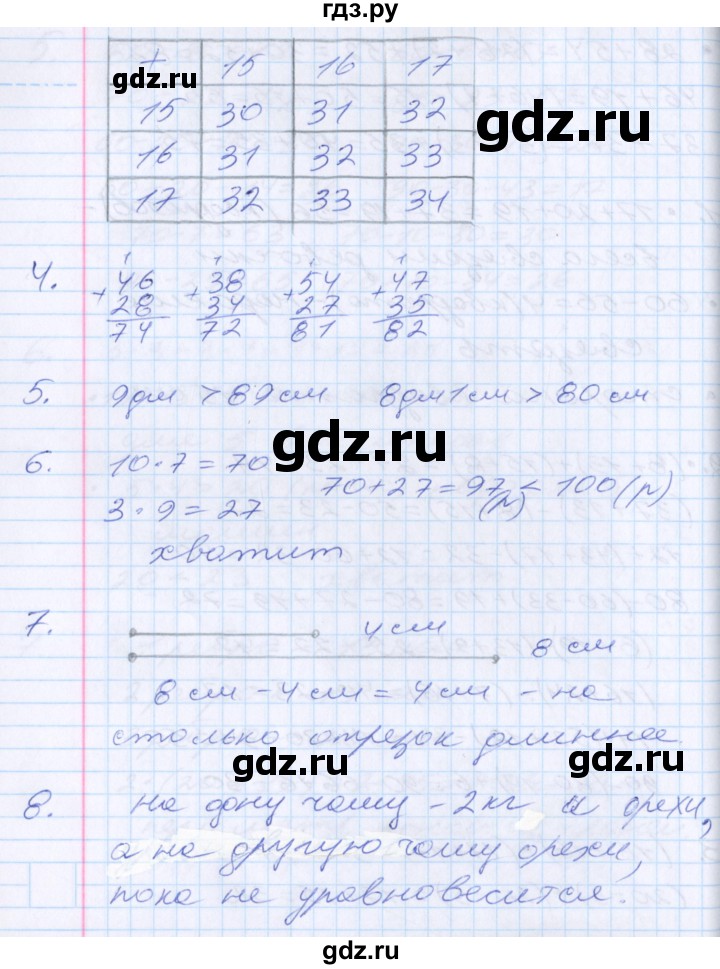 гдз.ру
+ 15 16 17
15 30 31 32
16 31 32 33
17 32 33 34
gdz.ru
gdz.ru
4. +46 +38 +54 +47
28 34 27 35
74 72 81 82
1 1 1 1
5. 9дм > 89 см 8дм 1см > 80 см
gdz.ru
6. 10·7=70
70+27=97(р) < 100(р)
3·9=27
хватит
7. 4 см
8 см
8 см - 4 см = 4 см - на
столько отрезок длиннее.
gdz.ru
gdz.ru
8. На одну чашу - 2 кг и орехи,
а на другую чашу орехи,
пока не уравновесится.
gdz.ru
gdz.ru